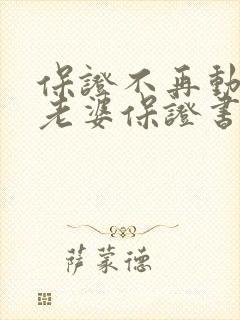 保證不再動
老婆保證書
萨蒙德